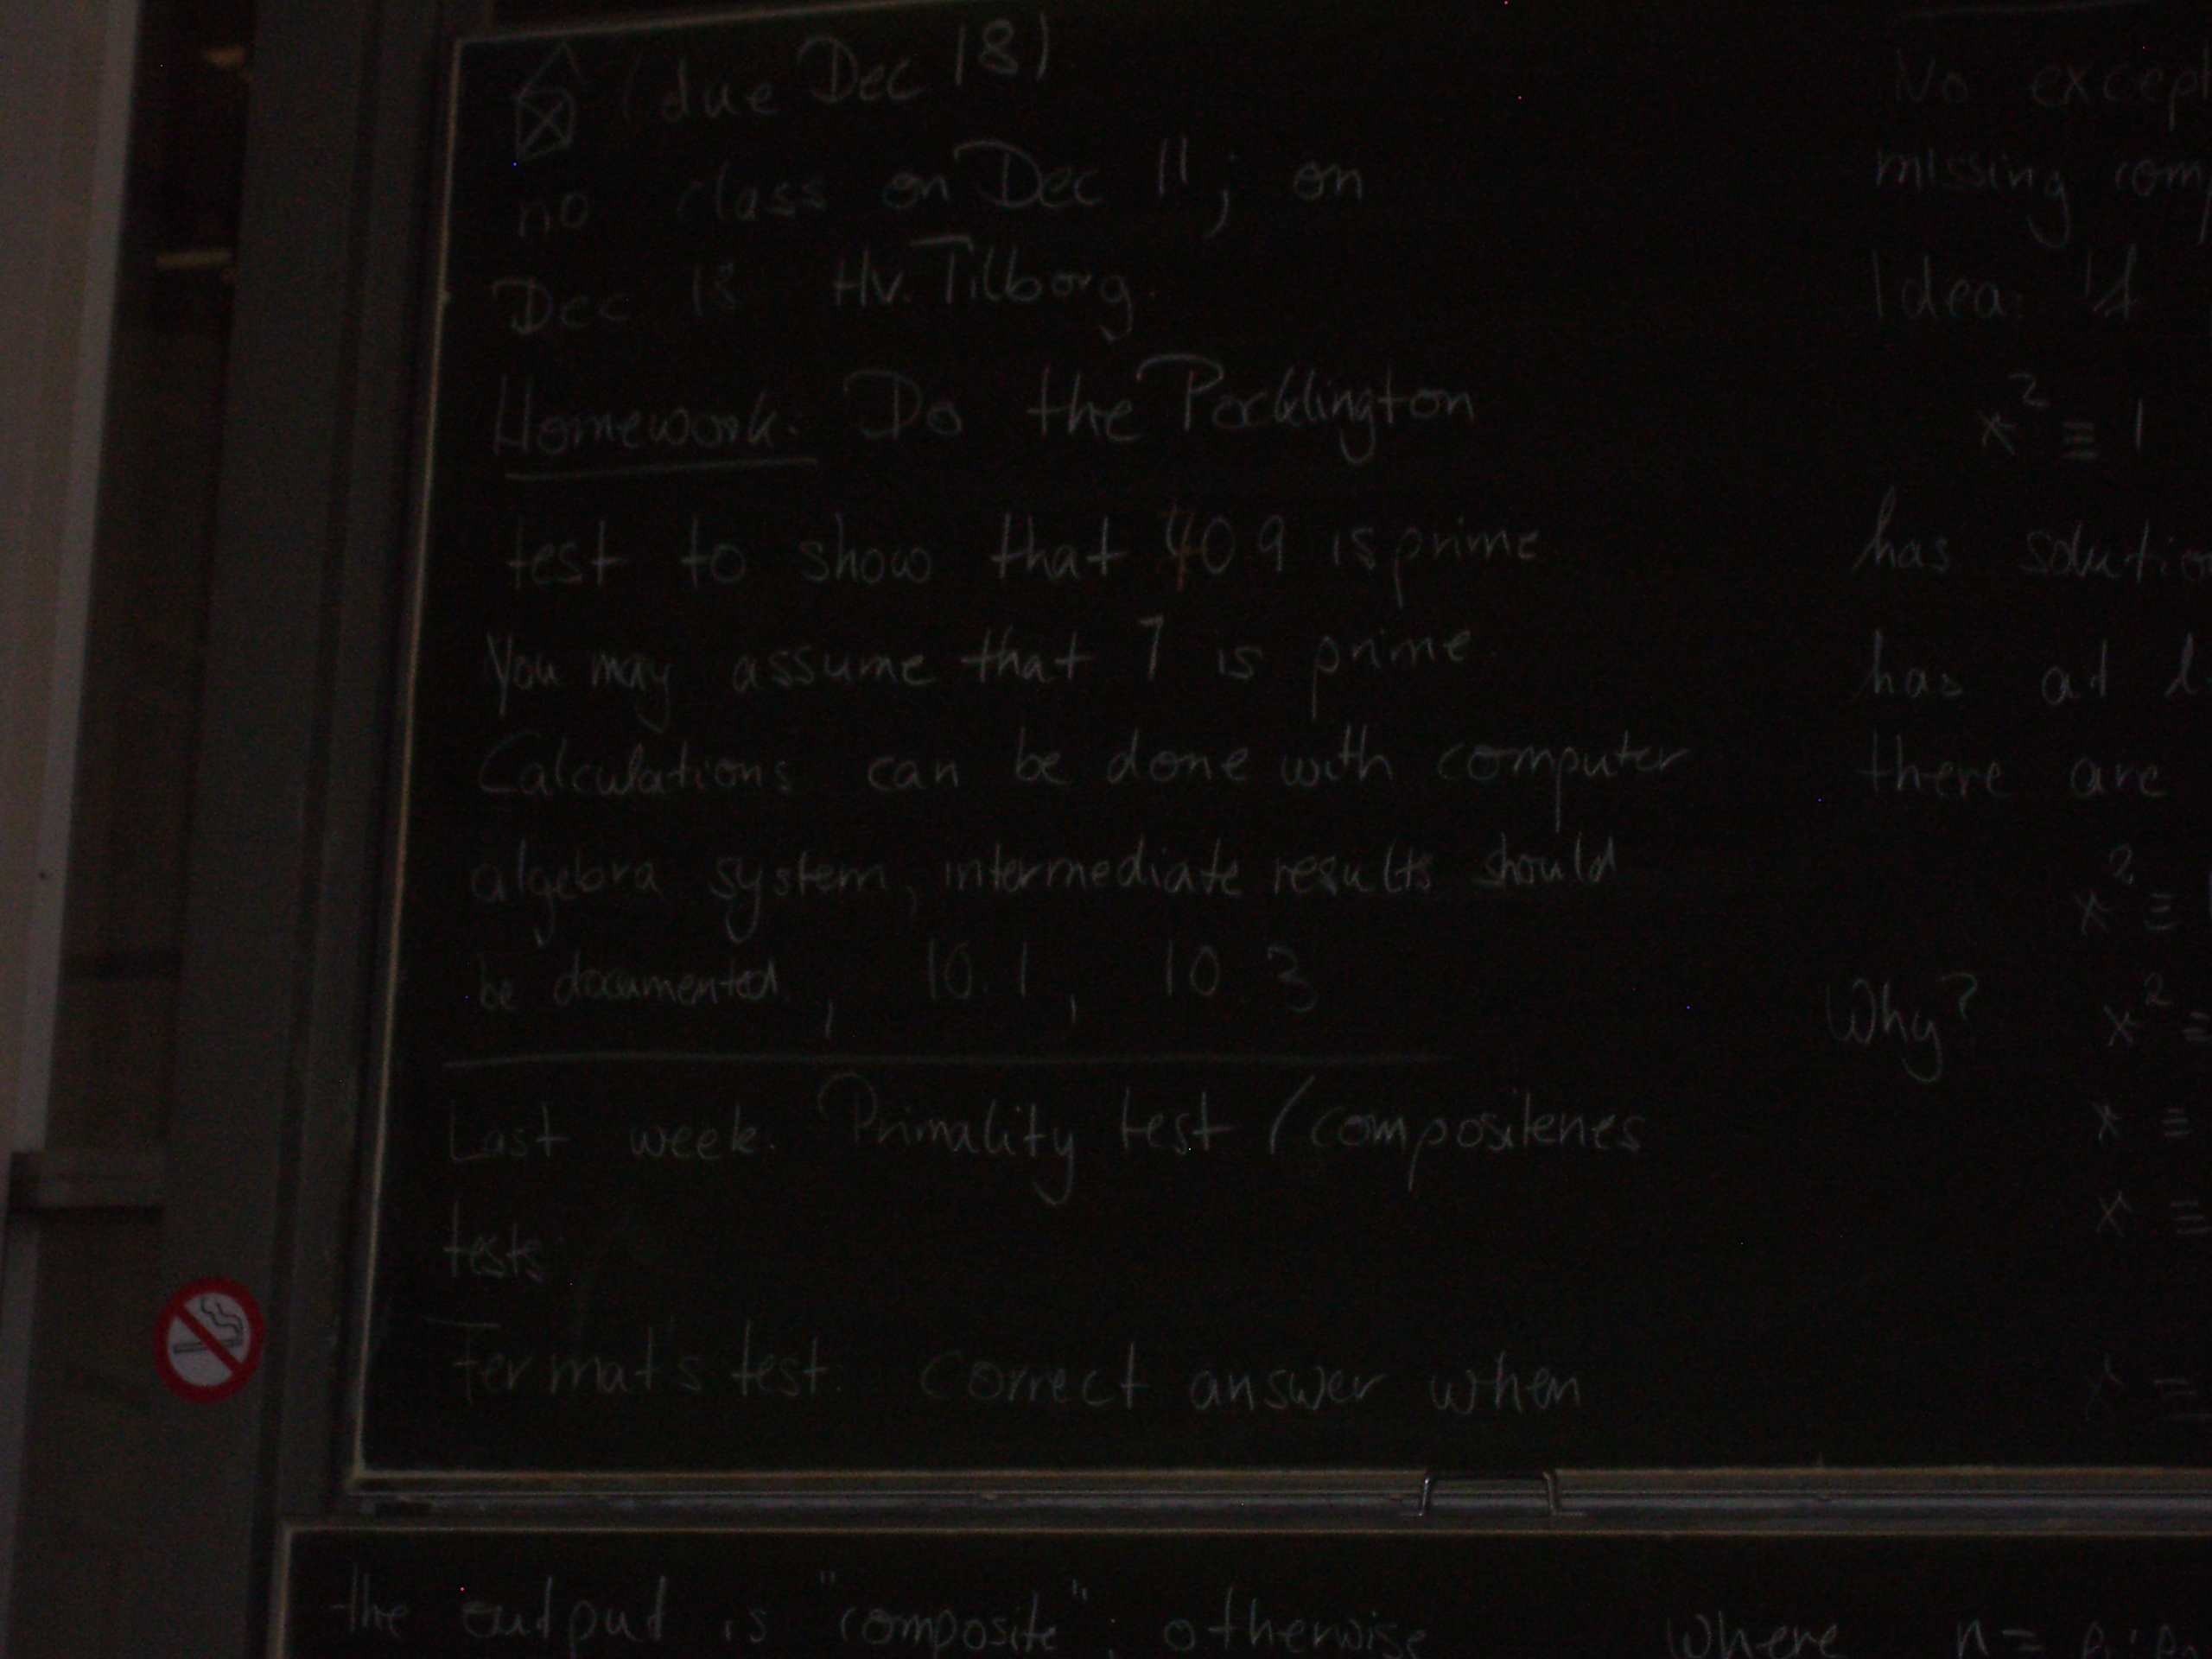 (due Dec 18)
no class on Dec 11; on
Dec 18 H.v. Tilborg.
Homework: Do the Pocklington
test to show that 409 is prime
You may assume that 7 is prime.
Calculations can be done with computer
algebra system, intermediate results should
be documented. , 10.1, 10.3
Last week: Primality test / compositenes
tests:
Fermat's test: Correct answer when
the output is "composite"; otherwise
No excep
missing com
Idea: if
x² ≡ 1
has solutio
has at
there are
x² ≡
Why? x² ≡
x ≡
x ≡
x ≡
where n =